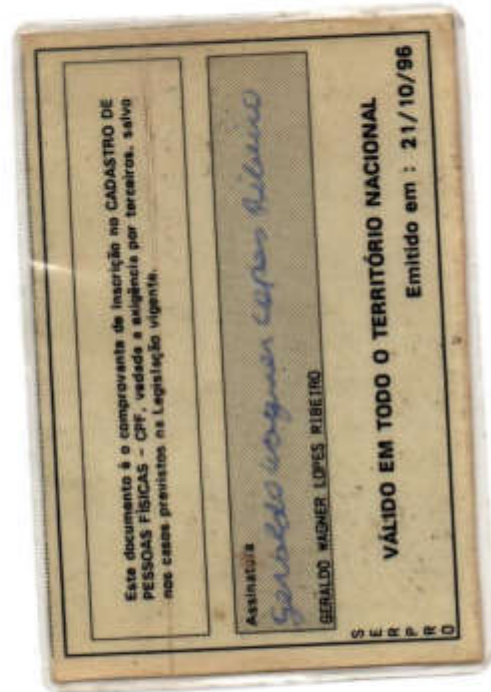 Este documento é o comprovante de inscrição no CADASTRO DE
PESSOAS FÍSICAS - CPF, vedada a exigência por terceiros, salvo
nos casos previstos na Legislação vigente.
Assinatura
Geraldo Wagner Lopes Ribeiro
GERALDO WAGNER LOPES RIBEIRO
VÁLIDO EM TODO O TERRITÓRIO NACIONAL
Emitido em : 21/10/96
SERPRO